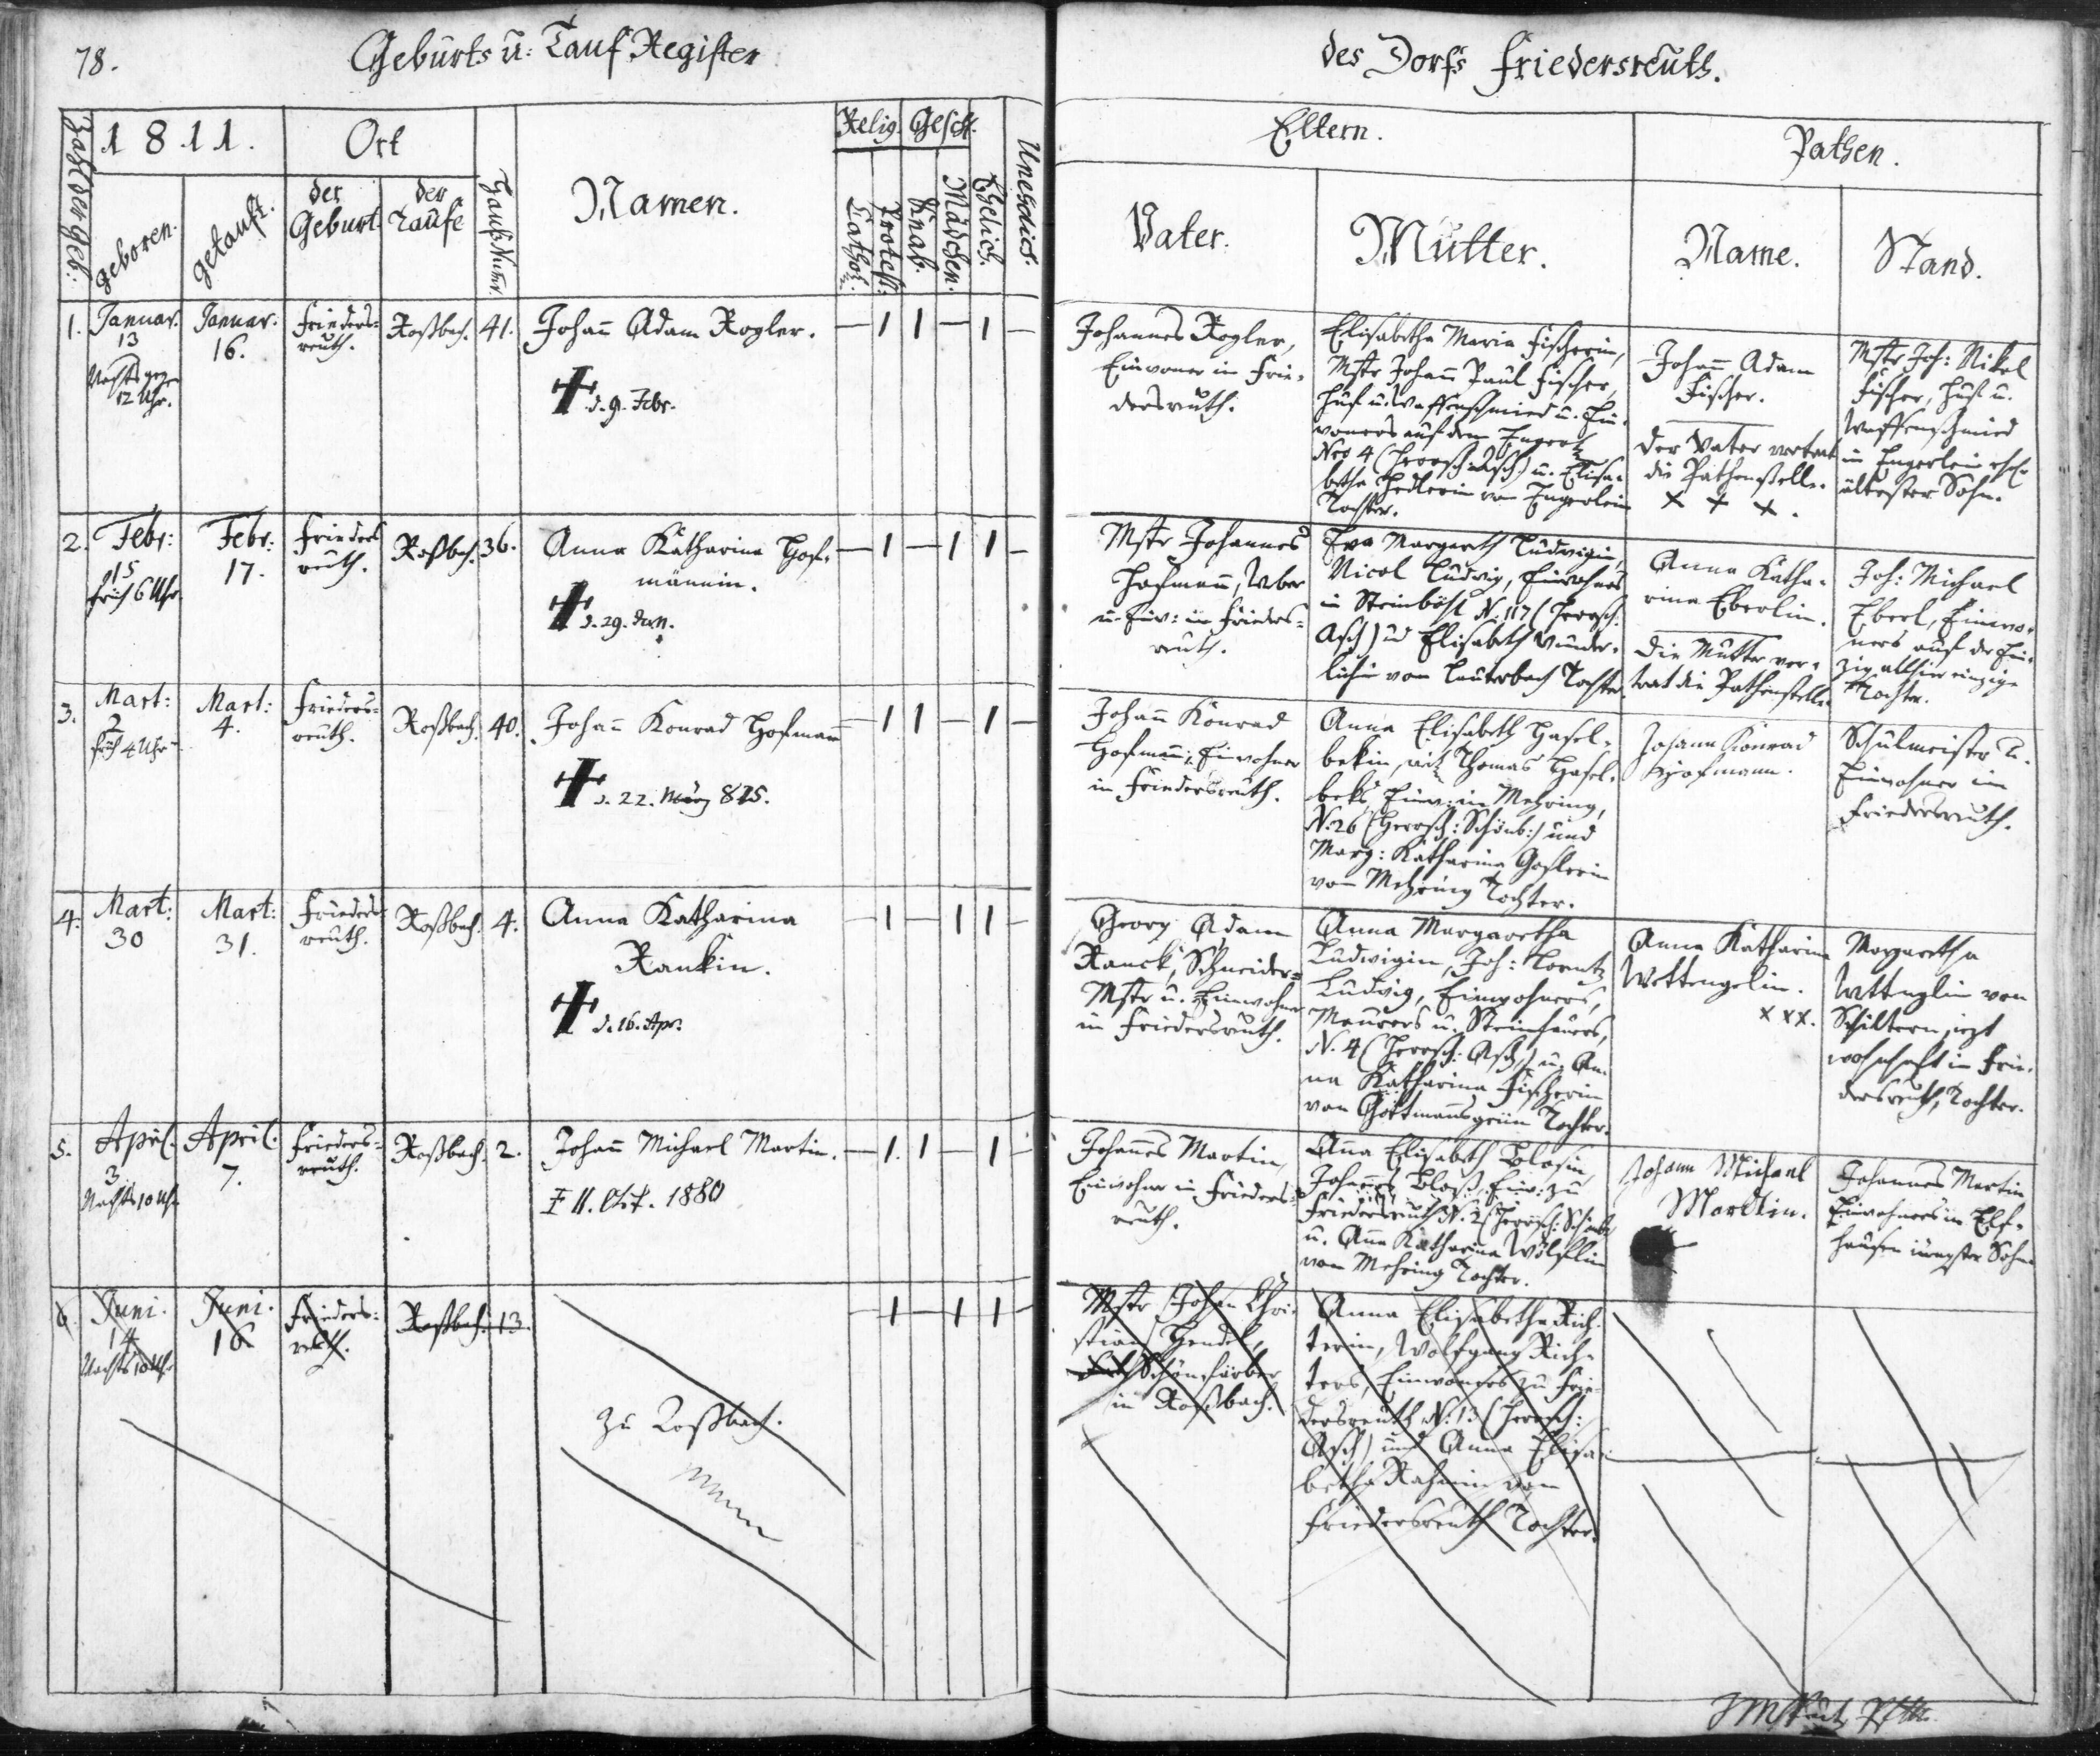 78.
Geburts u: Tauf Register
des Dorfs Friedersreuth.
Zahl der Geb:
1811.
geboren.
getauft.
Ort
der Geburt.
der Taufe
Hauß Numr.
Namen.
Relig.
Cathol:
Protest:
Gesch.
Knab.
Mädchen.
Ehelich.
Unehelich.
Eltern.
Vater.
Mutter.
Pathen.
Name.
Stand.
1.
Januar.
13
Nachts gegen
12 Uhr.
Januar.
16.
Frieders=
reuth.
Roßbach.
41.
Johann Adam Rogler.
d. 9. Febr.
— 1 1 — 1 —
Johannes Rogler,
Einwoner in Frie-
dersreuth.
Elisabetha Maria Fischerin,
Mstr Johann Paul Fischer,
Huf u. Waffenschmied u. Ein-
woners auf dem
Nro 4 (Herrsch. Asch) u. Elisa-
betha von
Tochter.
Johann Adam
Fischer.
Der Vater vertrat
die Pathenstelle.
x x x.
Mstr Joh: Nikol
Fischer, Huf u.
Waffenschmied
in
ältester Sohn.
2.
Febr:
15
früh 6 Uhr
Febr:
17.
Frieders
reuth.
Roßbach.
36.
Anna Katharina Hof-
männin.
d. 29.
— 1 — 1 1 —
Mstr Johannes
Hofmann, Weber
u. Einw: in Frieders=
reuth.
Eva Margareth Ludwigin,
Nicol Ludwig, Einwohners
in Steinböhl N. 117 (Herrsch:
Asch) u Elisabeth Wunder-
lichin von Lauterbach Tochter
Anna Katha-
rina Eberlin.
Die Mutter ver-
trat die Pathenstelle.
Joh: Michael
Eberl, Einwo-
ners auf der
allhier einzige
Tochter.
3.
Mart:
2
früh 4 Uhr
Mart:
4.
Frieders=
reuth.
Roßbach.
40.
Johann Konrad Hofmann
d. 22. März 815.
— 1 1 — 1 —
Johann Konrad
Hofmann, Einwohner
in Friedersreuth.
Anna Elisabeth Hasel-
bekin, Thomas Hasel-
beks, Einw: in Mehring,
N. 26 (Herrsch: Schönb:) und
Marg: Katharina Goßlerin
von Mehring Tochter.
Johann Konrad
Hofmann.
Schulmeister u.
Einwohner in
Friedersreuth.
4.
Mart:
30
Mart:
31.
Frieders=
reuth.
Roßbach.
4.
Anna Katharina
Rankin.
d. 16. Apr.
— 1 — 1 1 —
Georg Adam
Ranck, Schneider=
Mstr u. Einwohner
in Friedersreuth.
Anna Margaretha
Ludwigin, Joh: Lorentz
Ludwig, Einwohners,
Maurers u. Steinhauers,
N. 4 (Herrsch: Asch) u. An-
na Katharina Fischerin
von Gottmannsgrün Tochter.
Anna Katharina
Wettengelin.
x x x.
Margaretha
Wettenglin von
Schiltern, jezt
wohnhaft in Frie-
dersreuth, Tochter.
5.
April.
3
Nachts 10 Uhr
April.
7.
Frieders=
reuth.
Roßbach.
2.
Johann Michael Martin.
† 11. Okt. 1880
— 1. 1 — 1 —
Johannes Martin,
Einwohner in Frieders=
reuth.
Anna Elisabeth Bloßin,
Johannes Bloß, Einw: zu
Friedersreuth N. 2 (Herrsch: Schönb)
u. Anna Katharina Wölflin
von Mehring Tochter.
Johann Michael
Martin.
Johannes Martin
Einwohners in Elf-
hausen jüngster Sohn.
6.
Juni.
14
Nachts 10 Uhr
Juni.
16
Frieders:
reuth.
Roßbach.
13.
zu Roßbach.
1 — 1 1 —
Mstr Johan Chri-
stian Hendel,
Schönfärber
in Roßbach.
Anna Elisabetha Rich-
terin, Wolfgang Rich-
ters, Einwoners zu Frie-
dersreuth N. 13 (Herrsch:
Asch) und Anna Elisa-
betha Rahmin von
Friedersreuth Tochter.